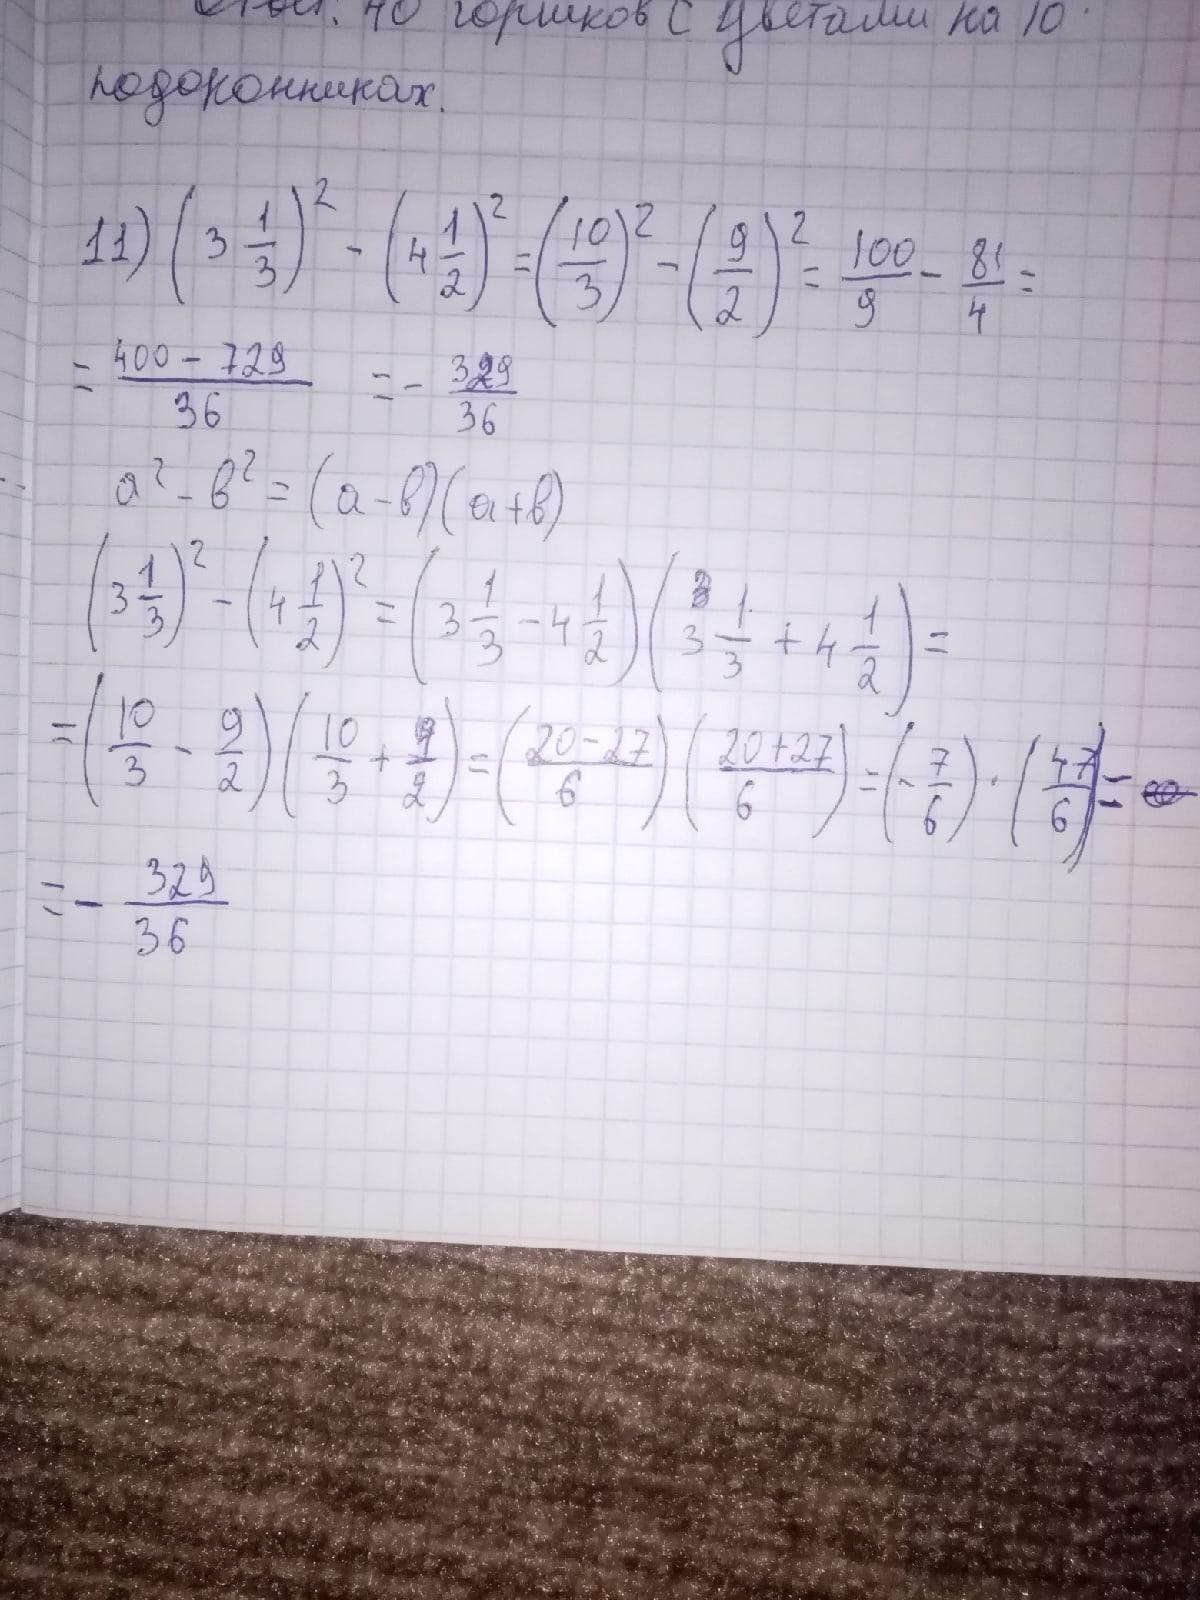 40 горшков с цветами на 10
подоконниках.
11) (3 1/3)² - (4 1/2)² = (10/3)² - (9/2)² = 100/9 - 81/4 =
= (400 - 729)/36 = - 329/36
a² - b² = (a - b)(a + b)
(3 1/3)² - (4 1/2)² = (3 1/3 - 4 1/2)(3 1/3 + 4 1/2) =
= (10/3 - 9/2)(10/3 + 9/2) = ((20 - 27)/6)((20 + 27)/6) = (- 7/6) · (47/6) =
= - 329/36